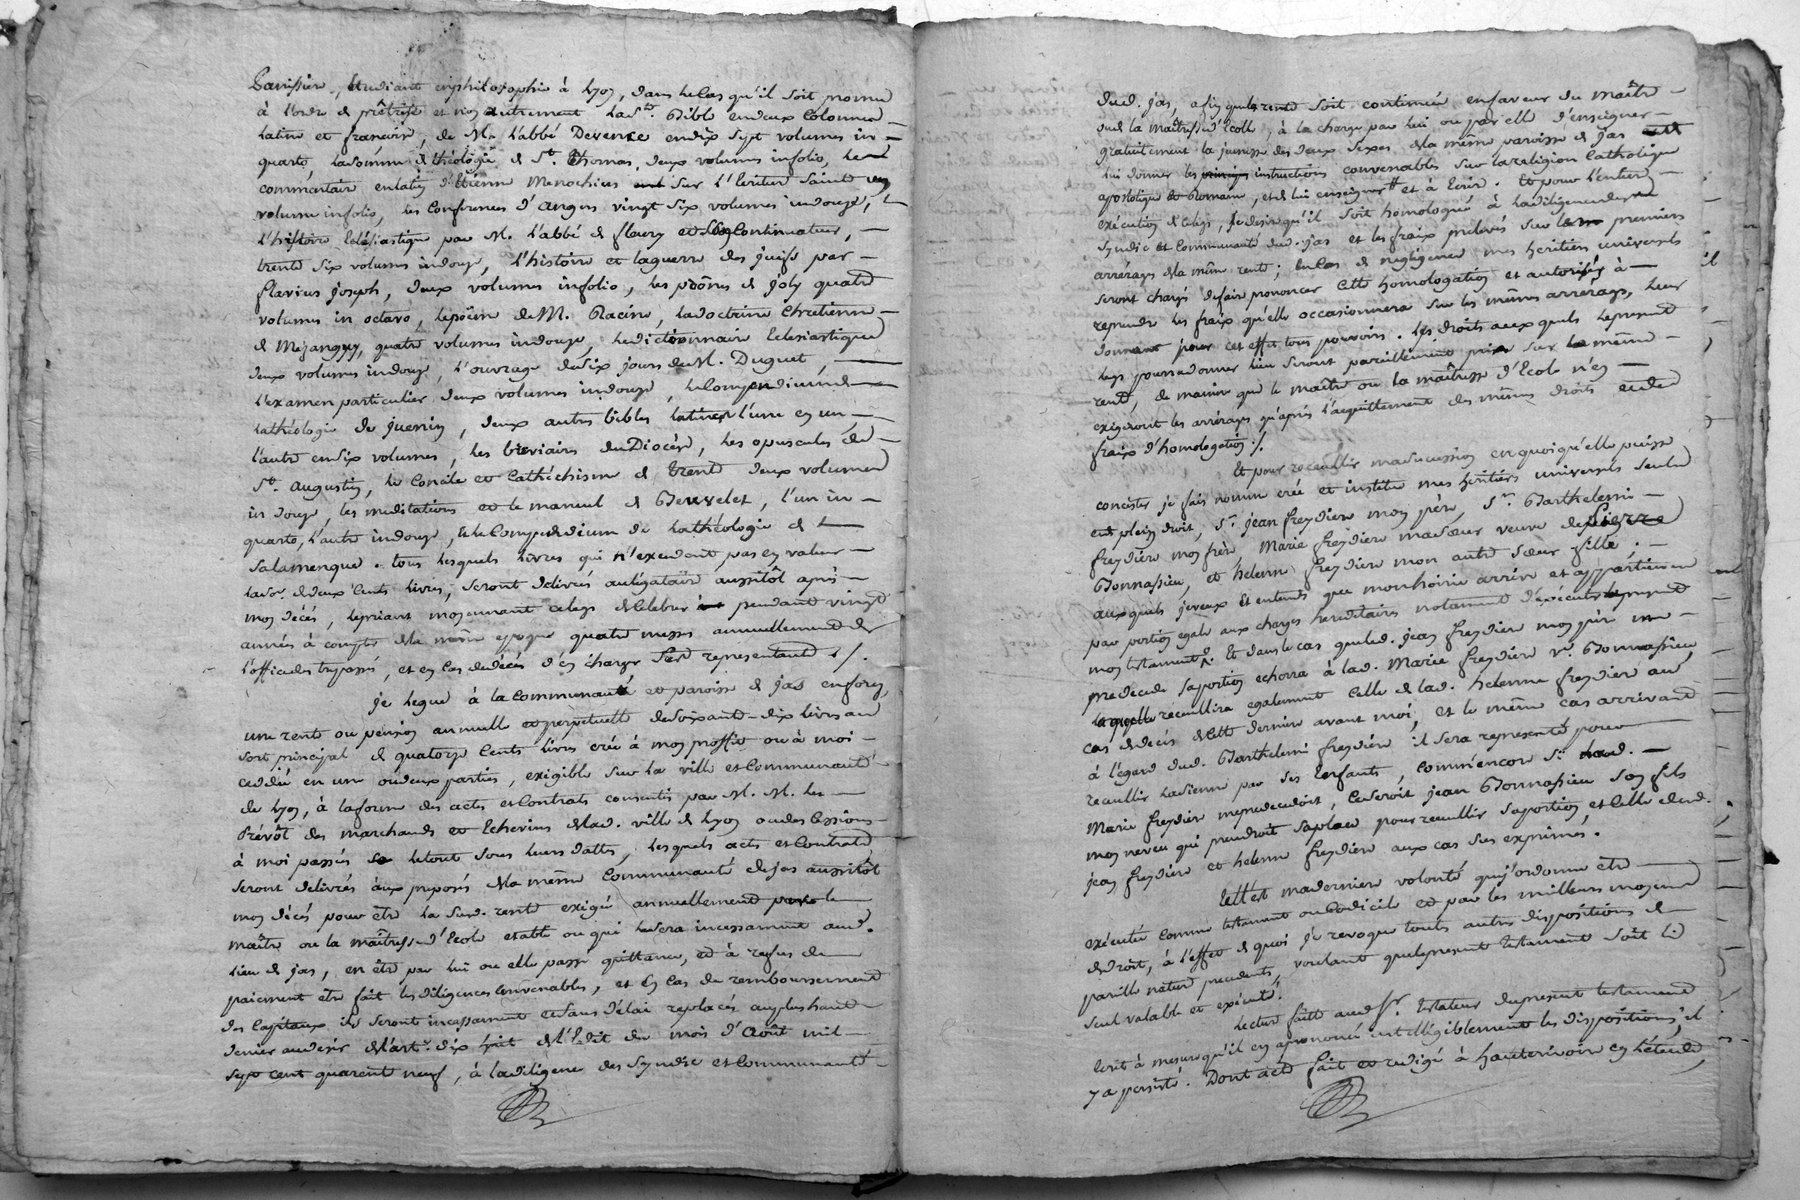 Parissien, Etudiant en philosophie à Lyon, dans le Cas qu'il soit promu
à l'ordre de prêtrise et non autrement la Ste. Bible en deux Colonnes
latin et francois, de Mr. l'abbé Devence en dix sept volumes in
quarto, la Somme de théologie de St. Thomas, deux volumes infolio, le
commentaire en latin d'Etienne Menochius sur l'Ecriture Sainte un
volume infolio, les Conferences d'Angers vingt six volumes indouze,
l'histoire Ecclésiastique par M. l'abbé de fleury et Son Continuateur,
trente six volumes indouze, l'histoire et la guerre des juifs par
flavius joseph, deux volumes infolio, les prônes de joly quatre
volumes in octavo, le poëme de M. Racine, la doctrine Chretienne
de Mezanguy, quatre volumes indouze, le dictionnaire Eclesiastique
deux volumes indouze, l'ouvrage des Six jours de M. Duguet,
l'examen particulier deux volumes indouze, le Compendium de
la théologie de juenin, deux autres bibles latines l'une en un
l'autre en Six volumes, les breviaires du Diocèse, les opuscules de
St. Augustin, le Concile et Cathéchisme de Trente deux volumes
in douze, les méditations et le manuel de Beuvelet, l'un in
quarto, l'autre indouze, et le Compendium de la théologie de
Salamenque. tous lesquels livres qui n'excedent pas en valeur
la So. de deux Cents livres, Seront délivrés au légataire aussitôt après
mon décés, le priant moyennant celas de Celebrer pendant vingt
années à compter de la même epoque quatre messes annuellement de
l'office des trepassés, et en cas de décès d'en charger Ses representants ./.
je legue à la Communauté et paroisse de jas en forez
une rente ou pension annuelle et perpetuelle de soixante-dix livres au
Sort principal de quatorze Cents livres créé à mon proffit ou à moi
cedée en une ou deux parties, exigible Sur la ville et Communauté
de Lyon, à la forme des actes et Contrats consentis par M. M. les
Prévôt des marchands et Echevins de lad. ville de Lyon ou des Cessions
à moi passées le tout sous leurs dattes, lesquels actes et Contrats
Seront délivrés aux preposés de la même Communauté de jas aussitôt
mon décés pour être la Susd. rente exigée annuellement par le
maître ou la maîtresse d'Ecole etabli ou qui le Sera incessamment aud.
lieu de jas, en être par lui ou elle passé quittance, et à refus de
paiement etre fait les diligences Convenables, et en Cas de remboursement
des Capitaux ils Seront incessament et Sans délai replacés au plus haut
denier au desir de l'art. dix huit de l'Edit du mois d'Août mil
Sept cent quarente neuf, à la diligence des Syndic et Communauté
dud. jas, afin que la rente Soit continuée en faveur du maître
ou de la maîtresse d'Ecole, à la charge par lui ou par elle d'enseigner
gratuitement la jeunesse des deux Sexes de la même paroisse de jas
lui donner les instructions convenables sur la religion Catholique
apostolique et Romaine, et de lui enseigner et à Ecrir. Et pour l'entier
exécution de celas, je desire qu'il Soit homologué à la diligence des
Syndic et Communauté dud. jas et les fraix prélevés sur les premiers
arrérages de la même rente; En Cas de negligence mes heritiers universels
Seront chargés de faire prononcer Cette homologation et autorisés à
reprendre les fraix qu'elle occasionnera Sur les mêmes arrérages, leur
donnant pour cet effet tous pouvoirs. les droits auxquels le present
legs pourra donner lieu Seront pareillement pris Sur la même
rente, de manière que le maître ou la maîtresse d'Ecole n'en
exigeront les arrérages qu'après l'acquittement des mêmes droits et de
fraix d'homologation ./.
Et pour receuillir ma Succession en quoi qu'elle puisse
concister je fais nomme crée et institue mes heritiers universels Seuls
et de plein droit, Sr. jean freydiere mon père, Sr. Barthelemi
freydiere mon frère, Marie freydiere ma Sœur veuve de Pierre
Bonnassieu, et helenne freydiere mon autre Sœur fille.
auxquels je veux et entends que mon hoirie arrive et appartienne
par portion egale aux charges hereditaires notament d'exécuter le present
mon testament. Et dans le cas que led. jean freydiere mon père me
predecede Sa portion echorra à lad. Marie freydiere ve. Bonnassieu
laquelle recueillira egalement Celle de lad. helenne freydiere au
cas de décès de cette derniere avant moi, et le même cas arrivant
à l'égard dud. Barthelemi freydiere il Sera representé pour
recueillir la Sienne par Ses Enfants, Comm'encor Si lad.
Marie freydiere me predecedoit, Ce Seroit jean Bonnassieu Son fils
mon neveu qui prendroit Sa place pour recueillir Sa portion, et Celle dud.
jean freydiere et helenne freydiere aux cas Sus exprimés.
Telle est ma derniere volonté que j'ordonne etre
exécutée comme testament ou Codicile et par les meilleurs moyens
de droit, à l'effet de quoi je revoque toutes autres dispositions de
pareille nature precedentes, voulant que le present testament Soit le
Seul valable et exécuté.
Lecture faitte aud. Sr. testateur du present testament
Ecrit à mesure qu'il en a prononcé intelligiblement les dispositions, il
y a persisté. Dont acte fait et redigé à hauterivoire en l'étude